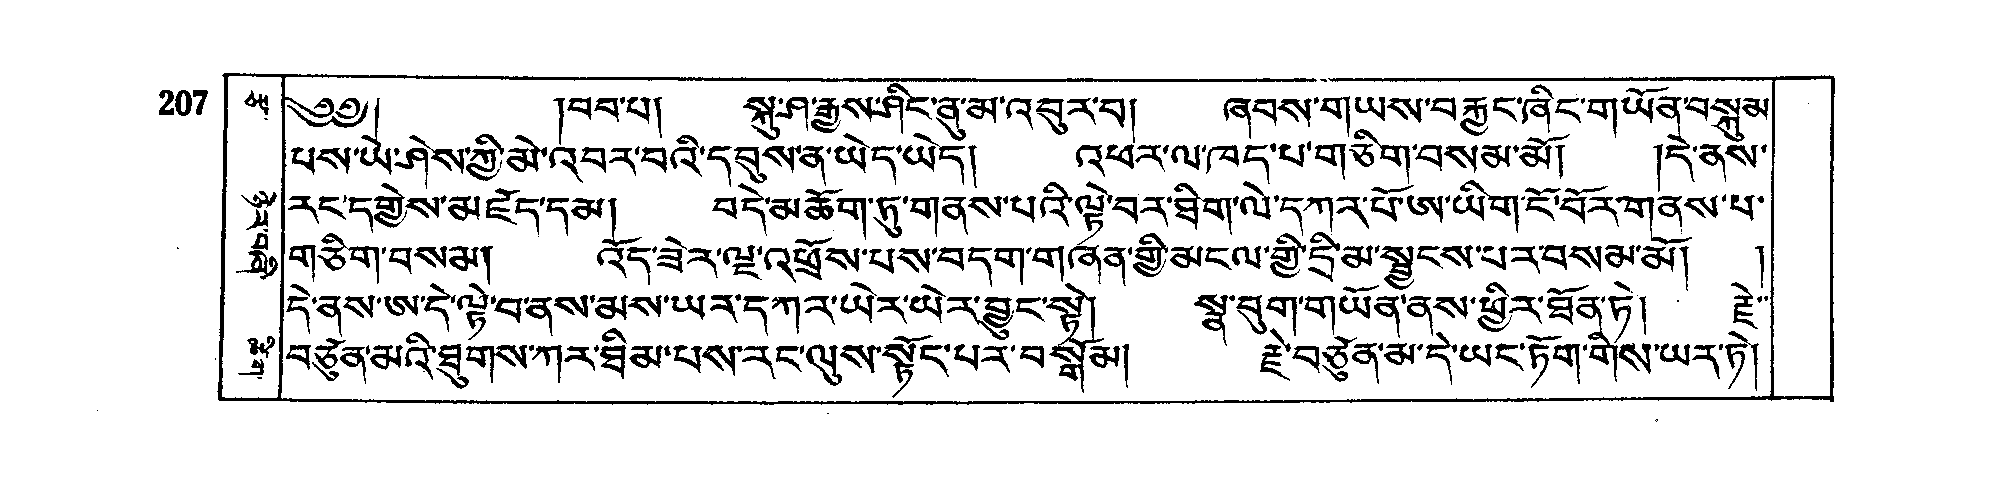 207
༄༅། །བབ་པ། སྐུ་ཤ་རྒྱས་ཤིང་ནུ་མ་འབུར་བ། ཞབས་གཡས་བརྐྱང་ཞིང་གཡོན་བསྐུམ
པས་ཡེ་ཤེས་ཀྱི་མེ་འབར་བའི་དབུས་ན་ཡེད་ཡེད། འཕར་ལ་ཁད་པ་གཅིག་བསམ་མོ། །དེ་ནས་
རང་དགྱེས་མཛོད་དམ། བདེ་མཆོག་ཏུ་གནས་པའི་ལྟེ་བར་ཐིག་ལེ་དཀར་པོ་ཨ་ཡིག་ངོ་བོར་གནས་པ་
གཅིག་བསམ། འོད་ཟེར་ལྔ་འཕྲོས་པས་བདག་གཞན་གྱི་མངལ་གྱི་དྲི་མ་སྦྱངས་པར་བསམ་མོ། །
དེ་ནས་ཨ་དེ་ལྟེ་བ་ནས་མས་ཡར་དཀར་ཡེར་ཡེར་བྱུང་སྟེ། སྣ་བུག་གཡོན་ནས་ཕྱིར་ཐོན་ཏེ། རྗེ་
བཙུན་མའི་ཐུགས་ཀར་ཐིམ་པས་རང་ལུས་སྟོང་པར་བསྒོམ། རྗེ་བཙུན་མ་དེ་ཡང་ཏོག་གིས་ཡར་ཏེ།